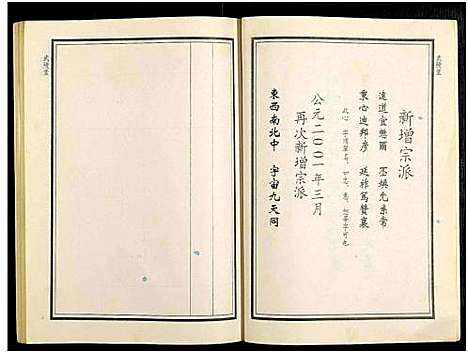 武陵堂
新增宗派
遠道宜懋爾 丕煥光亲常
秉心迪邦彦 廷祚篤贊襄
公元二〇〇一年三月
再次新增宗派
東西南北中 宇宙九天同
武陵堂